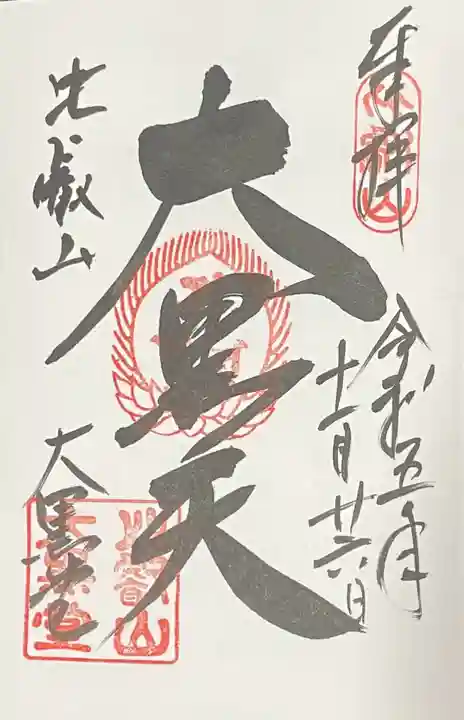 奉拝
令和五年
十一月廿六日
大黒天
比叡山
大黒堂
比叡山